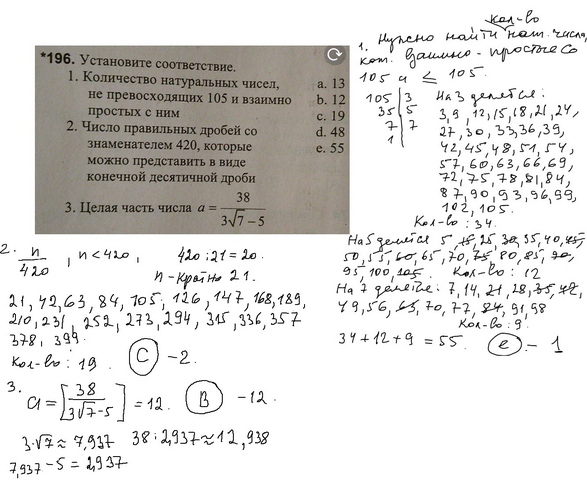 *196. Установите соответствие.
1. Количество натуральных чисел,
не превосходящих 105 и взаимно
простых с ним
2. Число правильных дробей со
знаменателем 420, которые
можно представить в виде
конечной десятичной дроби
3. Целая часть числа a = 38 / (3√7 − 5)
a. 13
b. 12
c. 19
d. 48
e. 55
кол-во
1. Нужно найти нат. числа,
кот. взаимно-простые со
105 и ≤ 105.
105 | 3
35 | 5
7 | 7
1
На 3 делятся:
3, 9, 12, 15, 18, 21, 24,
27, 30, 33, 36, 39,
42, 45, 48, 51, 54,
57, 60, 63, 66, 69,
72, 75, 78, 81, 84,
87, 90, 93, 96, 99,
102, 105.
Кол-во: 34
На 5 делятся 5, 15, 25, 30, 35, 40, 45,
50, 55, 60, 65, 70, 75, 80, 85, 90,
95, 100, 105. Кол-во: 12
На 7 делятся: 7, 14, 21, 28, 35, 42,
49, 56, 63, 70, 77, 84, 91, 98
Кол-во: 9.
34 + 12 + 9 = 55. e - 1
2. n/420, n < 420, 420 : 21 = 20.
n - кратно 21.
21, 42, 63, 84, 105, 126, 147, 168, 189,
210, 231, 252, 273, 294, 315, 336, 357
378, 399.
Кол-во: 19 C - 2.
3. a = [38 / (3√7 - 5)] = 12. B - 12.
3·√7 ≈ 7,937 38 : 2,937 ≈ 12,938
7,937 - 5 = 2,937